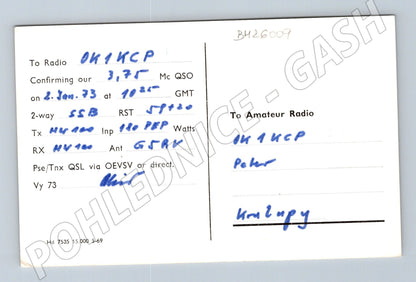 BH26009
To Radio OK1KCP
Confirming our 3,75 Mc QSO
on 2. Jan. 73 at 1025 GMT
2-way SSB RST 59+20
Tx HW100 Inp 180 PEP Watts
RX HW100 Ant G5RV
Pse/Tnx QSL via OEVSV or direct.
Vy 73
To Amateur Radio
OK1KCP
Peter
Kralupy
POHLEDNICE - GASH